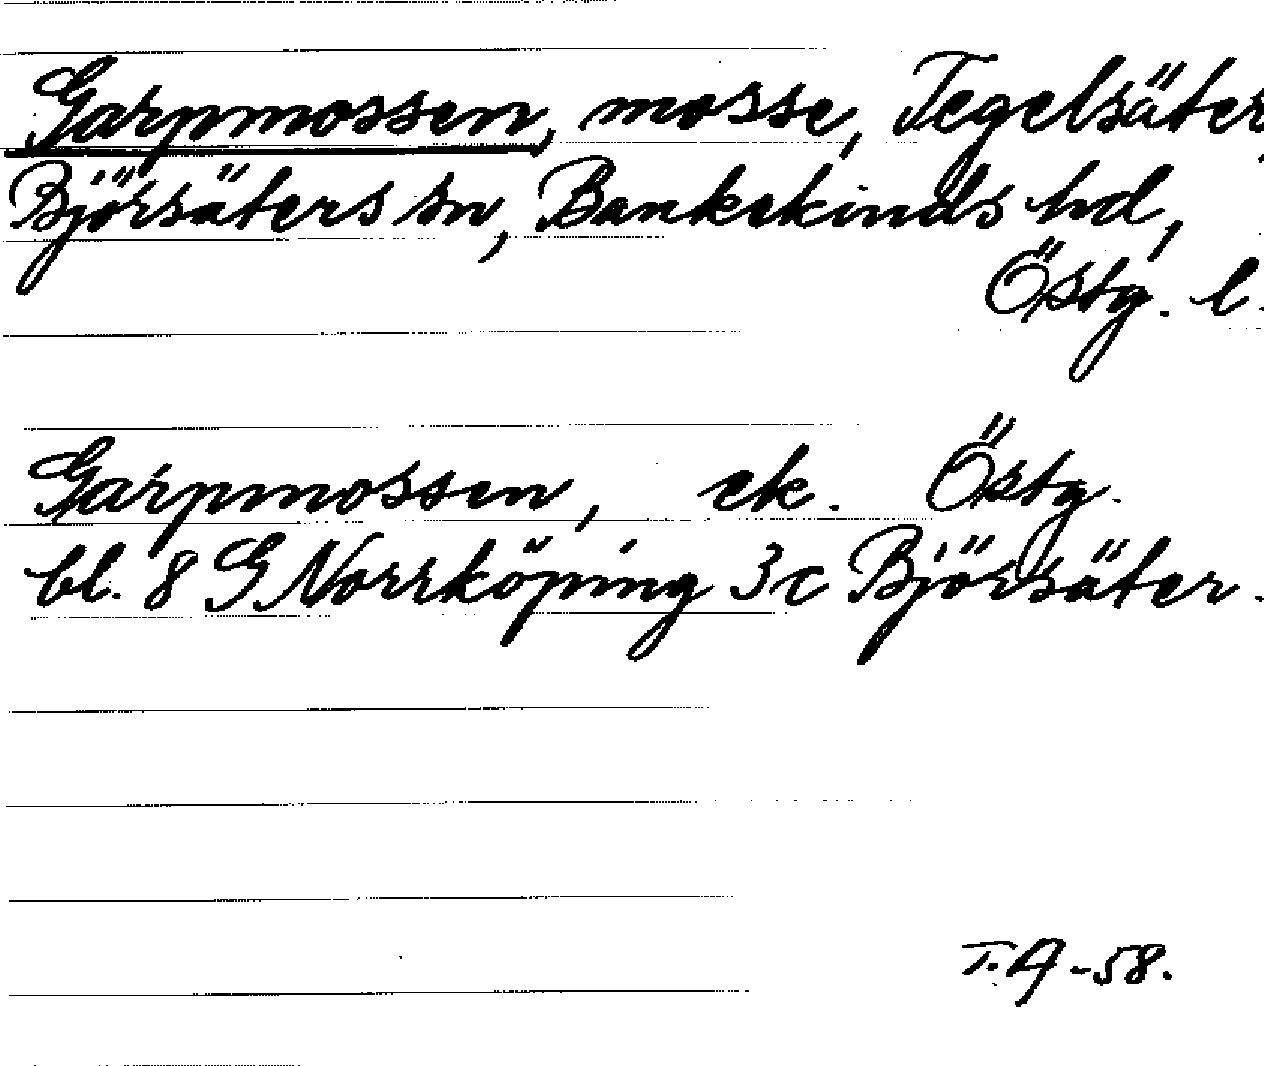 Garpmossen, mosse, Tegelsäter,
Björsäters sn, Bankekinds hd,
Östg. l.
Garpmossen, ek. Östg.
bl. 8 G Norrköping 3c Björsäter.
T.A -58.